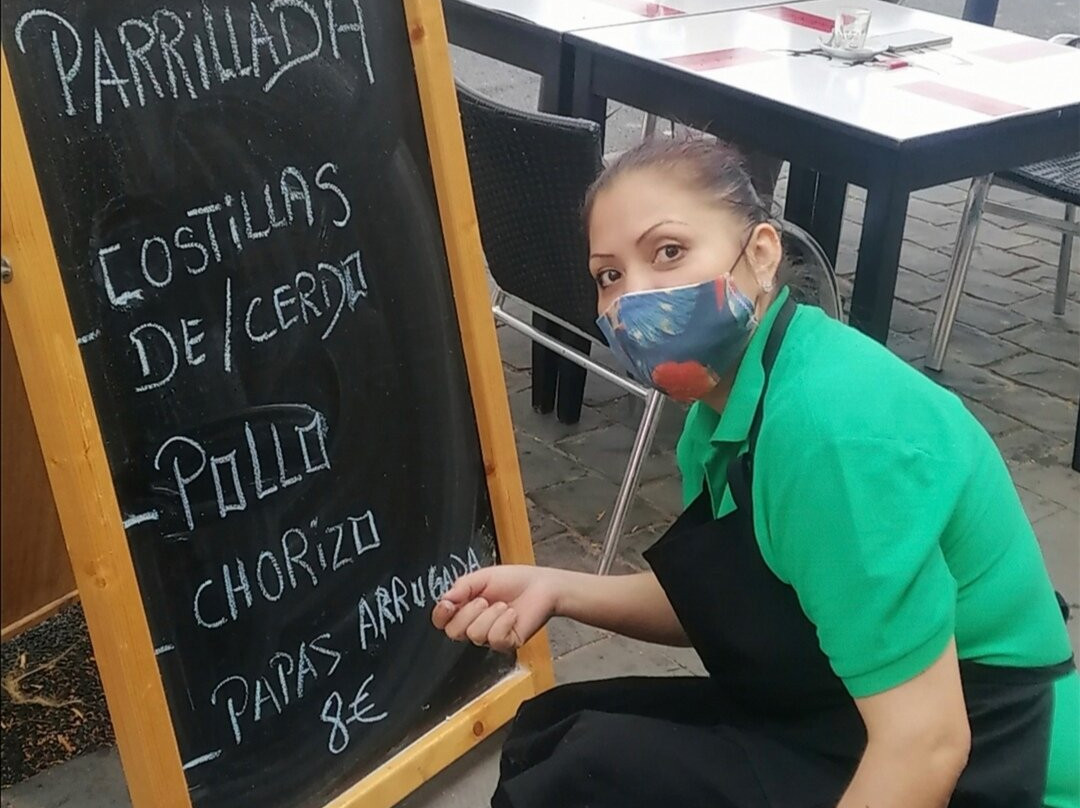 PARRILLADA
COSTILLAS
DE/CERDO
POLLO
CHORIZO
PAPAS ARRUGADA
8€